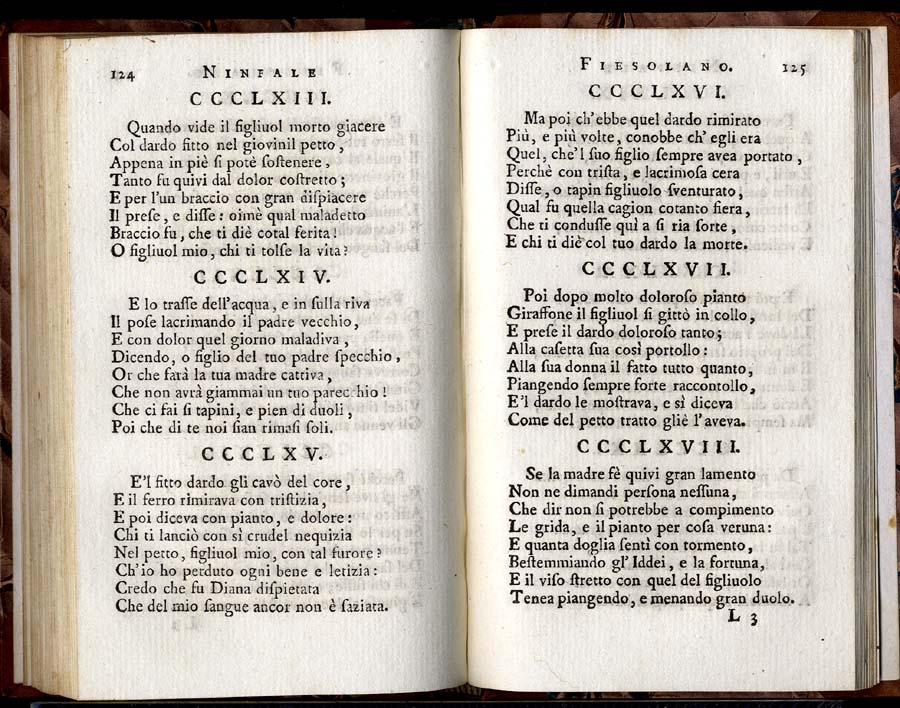 124 NINFALE
CCCLXIII.
Quando vide il figliuol morto giacere
Col dardo fitto nel giovinil petto,
Appena in piè si potè sostenere,
Tanto fu quivi dal dolor costretto;
E per l'un braccio con gran dispiacere
Il prese, e disse: oimè qual maladetto
Braccio fu, che ti diè cotal ferita!
O figliuol mio, chi ti tolse la vita?
CCCLXIV.
E lo trasse dell'acqua, e in sulla riva
Il pose lacrimando il padre vecchio,
E con dolor quel giorno maladiva,
Dicendo, o figlio del tuo padre specchio,
Or che farà la tua madre cattiva,
Che non avrà giammai un tuo parecchio!
Che ci fai sì tapini, e pien di duoli,
Poi che di te noi sian rimasi soli.
CCCLXV.
E'l fitto dardo gli cavò del core,
E il ferro rimirava con tristizia,
E poi diceva con pianto, e dolore:
Chi ti lanciò con sì crudel nequizia
Nel petto, figliuol mio, con tal furore?
Ch'io ho perduto ogni bene e letizia:
Credo che fu Diana dispietata
Che del mio sangue ancor non è saziata.
FIESOLANO. 125
CCCLXVI.
Ma poi ch'ebbe quel dardo rimirato
Più, e più volte, conobbe ch'egli era
Quel, che'l suo figlio sempre avea portato,
Perchè con trista, e lacrimosa cera
Disse, o tapin figliuolo sventurato,
Qual fu quella cagion cotanto fiera,
Che ti condusse quì a si ria sorte,
E chi ti diè col tuo dardo la morte.
CCCLXVII.
Poi dopo molto doloroso pianto
Giraffone il figliuol si gittò in collo,
E prese il dardo doloroso tanto;
Alla casetta sua così portollo:
Alla sua donna il fatto tutto quanto,
Piangendo sempre forte raccontollo,
E'l dardo le mostrava, e sì diceva
Come del petto tratto gliè l'aveva.
CCCLXVIII.
Se la madre fè quivi gran lamento
Non ne dimandi persona nessuna,
Che dir non si potrebbe a compimento
Le grida, e il pianto per cosa veruna:
E quanta doglia sentì con tormento,
Bestemmiando gl'Iddei, e la fortuna,
E il viso stretto con quel del figliuolo
Tenea piangendo, e menando gran duolo.
L 3